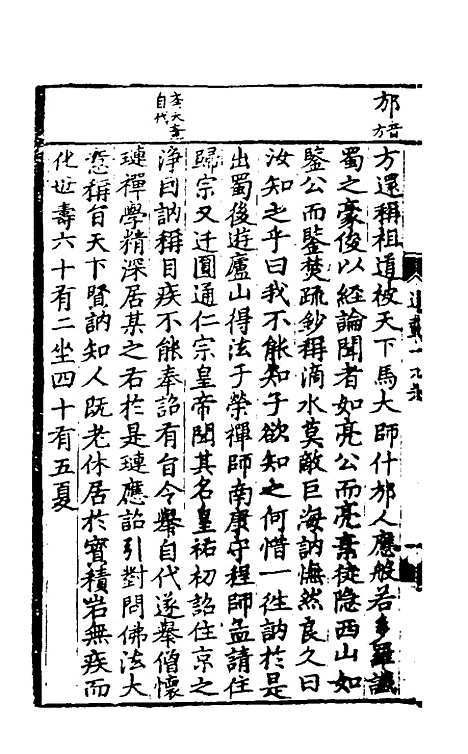 邡音方
李大章自代
方還稱祖道被天下馬大師什邡人應般若多羅讖
蜀之豪俊以經論聞者如亮公而亮棄徒隐西山如
鑒公而鑒焚疏鈔稱滴水莫敵巨海訥憮然良久曰
汝知之乎曰我不能知子欲知之何惜一徃訥於是
出蜀後遊廬山得法于榮禪師南康守程師孟請住
歸宗又迁圓通仁宗皇帝聞其名皇祐初詔住京之
淨曰訥稱目疾不能奉詔有旨令舉自代遂舉僧懷
璉禪學精深居某之右於是璉應詔引對問佛法大
恱稱旨天下賢訥知人既老休居於寶積岩無疾而
化世壽六十有二坐四十有五夏